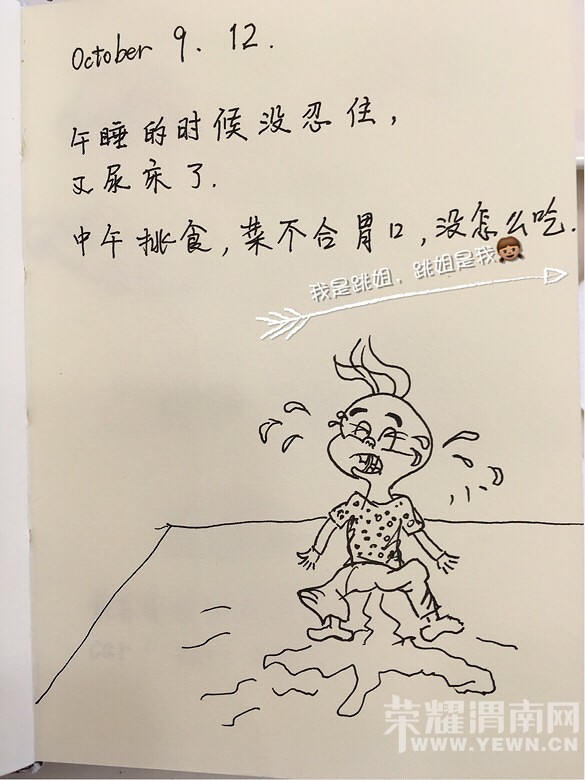 October 9. 12.
午睡的时候没忍住，
又尿床了.
中午挑食，菜不合胃口，没怎么吃.
我是跳姐，跳姐是我
荣耀渭南网
WWW.YEWN.CN